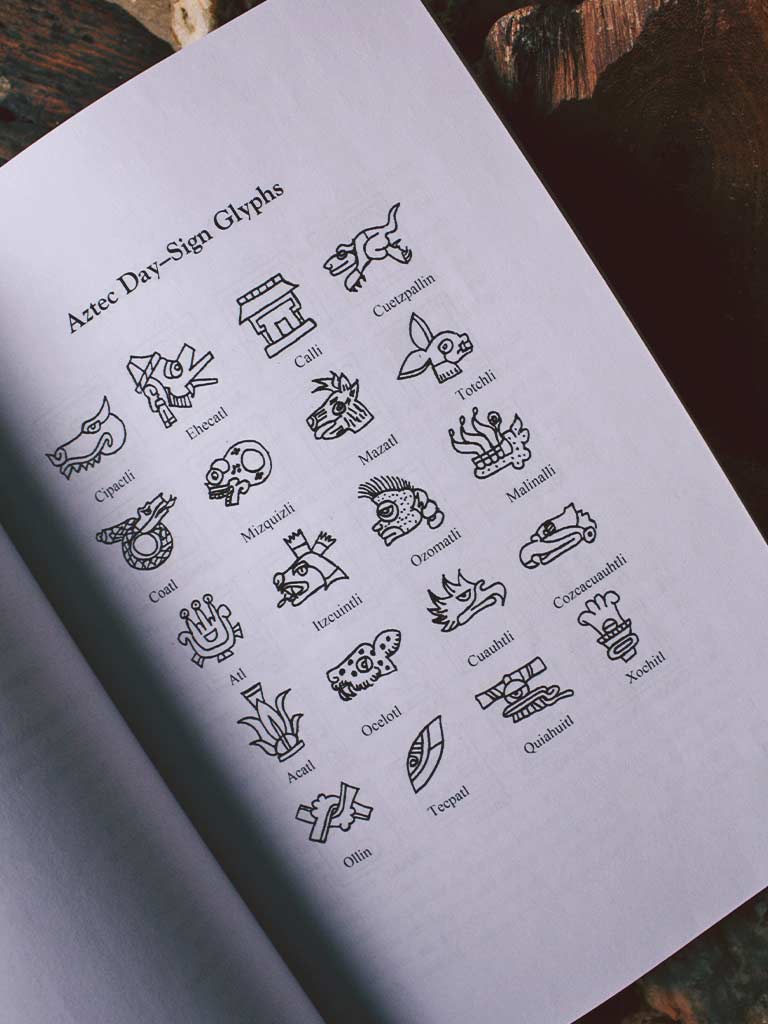 Aztec Day–Sign Glyphs
Cipactli
Ehecatl
Calli
Cuetzpallin
Coatl
Mizquizli
Mazatl
Totchli
Atl
Itzcuintli
Ozomatli
Malinalli
Acatl
Ocelotl
Cuauhtli
Cozcacuauhtli
Ollin
Tecpatl
Quiahuitl
Xochitl